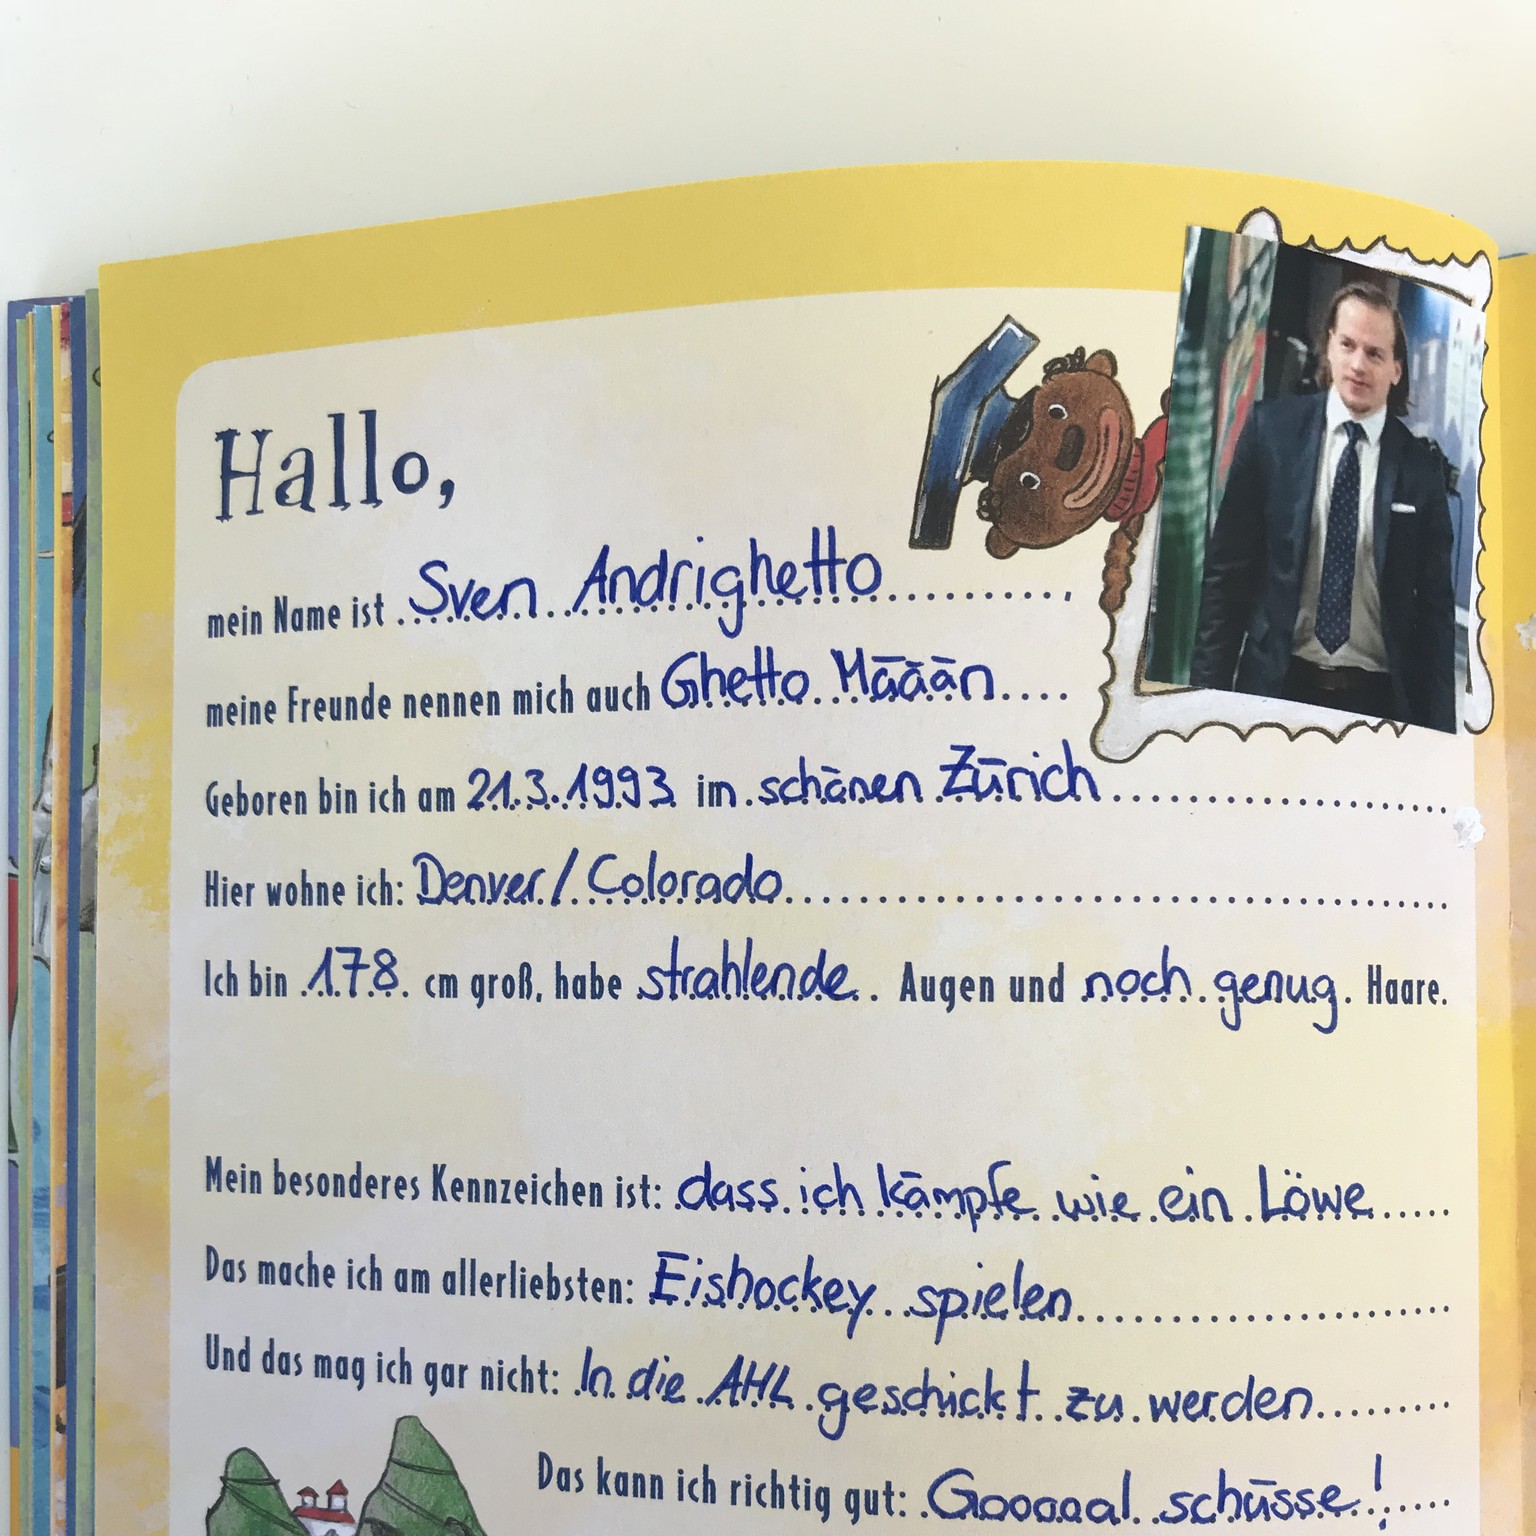 Hallo,
mein Name ist Sven Andrighetto,
meine Freunde nennen mich auch Ghetto Määän
Geboren bin ich am 21.3.1993 im schönen Zürich
Hier wohne ich: Denver/Colorado
Ich bin 178 cm groß, habe strahlende Augen und noch genug Haare.
Mein besonderes Kennzeichen ist: dass ich kämpfe wie ein Löwe
Das mache ich am allerliebsten: Eishockey spielen
Und das mag ich gar nicht: In die AHL geschickt zu werden
Das kann ich richtig gut: Gooooal schüsse!